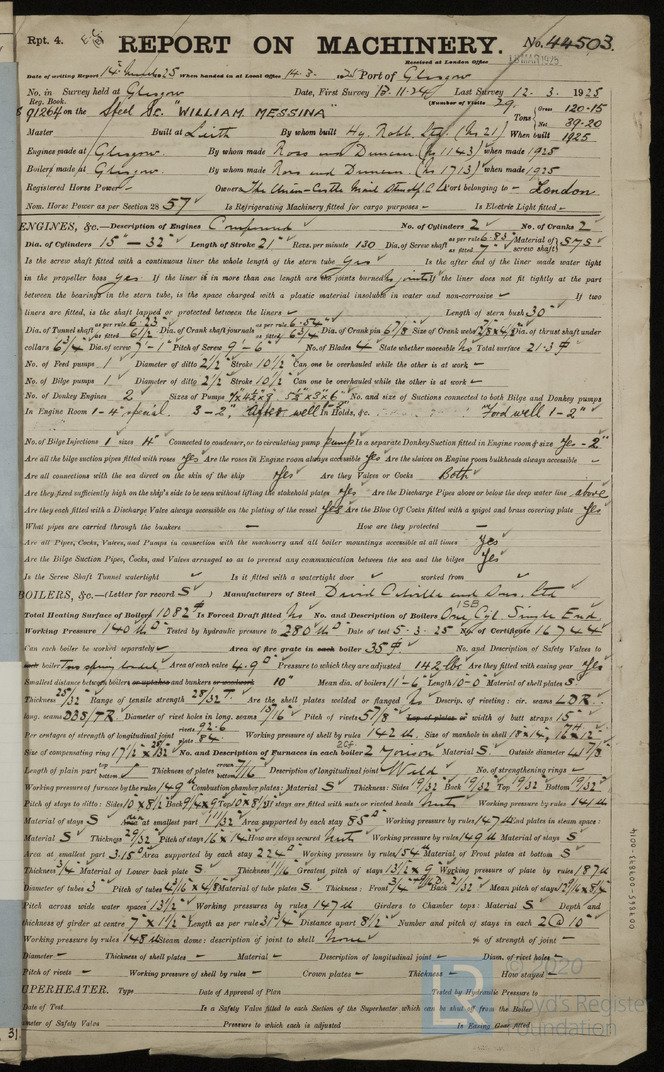 Rpt. 4. REPORT ON MACHINERY. No. 44503.
Received at London Office 18 MAR 1925
Date of writing Report 1925 When handed in at Local Office 14.3. 1925 Port of Glasgow
No. in Survey held at Glasgow Date, First Survey 13.11.24 Last Survey 12.3. 1925
Reg. Book. (Number of Visits 29.
91264 on the Steel Sc. "WILLIAM MESSINA" Tons Gross 120.15 Net 39.20
Master Built at Leith By whom built Hy. Robb. Ltd. (No 21) When built 1925
Engines made at Glasgow. By whom made Ross and Duncan. (No 1143) when made 1925
Boilers made at Glasgow. By whom made Ross and Duncan. (No 1713) when made 1925
Registered Horse Power – Owners The Union-Castle Mail Port belonging to – London
Nom. Horse Power as per Section 28 57 Is Refrigerating Machinery fitted for cargo purposes – Is Electric Light fitted –
ENGINES, &c.—Description of Engines Compound No. of Cylinders 2 No. of Cranks 2
Dia. of Cylinders 15" – 32" Length of Stroke 21" Revs. per minute 130 Dia. of Screw shaft as per rule 6.83" as fitted 7" Material of screw shaft S
Is the screw shaft fitted with a continuous liner the whole length of the stern tube Yes Is the after end of the liner made water tight
in the propeller boss Yes If the liner is in more than one length are the joints burned no joints If the liner does not fit tightly at the part
between the bearings in the stern tube, is the space charged with a plastic material insoluble in water and non-corrosive – If two
liners are fitted, is the shaft lapped or protected between the liners Length of stern bush 30"
Dia. of Tunnel shaft as per rule 6.23" as fitted 6 1/2 Dia. of Crank shaft journals as per rule 6.54" as fitted 6 3/4 Dia. of Crank pin 6 7/8 Size of Crank webs Dia. of thrust shaft under
collars 6 3/4 Dia. of screw 7'-1" Pitch of Screw 9'-6" No. of Blades 4 State whether moveable No Total surface 21.3
No. of Feed pumps 1 Diameter of ditto 2 1/2" Stroke 10 1/2" Can one be overhauled while the other is at work –
No. of Bilge pumps 1 Diameter of ditto 2 1/2 Stroke 10 1/2" Can one be overhauled while the other is at work –
No. of Donkey Engines 2 Sizes of Pumps 5 1/2" x 3" x 6" No. and size of Suctions connected to both Bilge and Donkey pumps
In Engine Room 1-4" special. 3-2", After well In Holds, &c. Ford well 1-2"
No. of Bilge Injections 1 sizes 4" Connected to condenser, or to circulating pump pump Is a separate Donkey Suction fitted in Engine room & size Yes - 2"
Are all the bilge suction pipes fitted with roses Yes Are the roses in Engine room always accessible Yes Are the sluices on Engine room bulkheads always accessible –
Are all connections with the sea direct on the skin of the ship Yes Are they Valves or Cocks Both
Are they fixed sufficiently high on the ship's side to be seen without lifting the stokehold plates Yes Are the Discharge Pipes above or below the deep water line above
Are they each fitted with a Discharge Valve always accessible on the plating of the vessel Yes Are the Blow Off Cocks fitted with a spigot and brass covering plate Yes
What pipes are carried through the bunkers – How are they protected –
Are all Pipes, Cocks, Valves, and Pumps in connection with the machinery and all boiler mountings accessible at all times Yes
Are the Bilge Suction Pipes, Cocks, and Valves arranged so as to prevent any communication between the sea and the bilges Yes
Is the Screw Shaft Tunnel watertight Is it fitted with a watertight door worked from
BOILERS, &c.—(Letter for record S) Manufacturers of Steel David Colville and Sons. Ltd
Total Heating Surface of Boilers 1082 Is Forced Draft fitted No No. and Description of Boilers One Cyl. Single End. 1SB
Working Pressure 140 lb Tested by hydraulic pressure to 280 lb Date of test 5.3.25 No. of Certificate 16744
Can each boiler be worked separately Area of fire grate in each boiler 35 No. and Description of Safety Valves to
each boiler Two spring loaded Area of each valve 4.9 Pressure to which they are adjusted 142 lbs Are they fitted with easing gear Yes
Smallest distance between boilers or uptakes and bunkers or woodwork 10" Mean dia. of boilers 11'-6" Length 10'-0" Material of shell plates S
Thickness 25/32 Range of tensile strength 28/32 T. Are the shell plates welded or flanged No Descrip. of riveting: cir. seams LDR.
long. seams DBS/TR. Diameter of rivet holes in long. seams 15/16" Pitch of rivets 5 7/8 Lap of plates or width of butt straps 15"
Per centages of strength of longitudinal joint rivets 92.6 plate 84 Working pressure of shell by rules 142 lb. Size of manhole in shell
Size of compensating ring No. and Description of Furnaces in each boiler 2 Morison Material S Outside diameter 41 7/8
Length of plain part top bottom Thickness of plates crown bottom 7/16 Description of longitudinal joint Weld No. of strengthening rings –
Working pressure of furnace by the rules 149 lb Combustion chamber plates: Material S Thickness: Sides 19/32 Back 19/32 Top 19/32 Bottom 19/32
Pitch of stays to ditto: Sides 10 x 8 1/2 Back 9 1/4 x 9 Top 10 x 8 1/2 If stays are fitted with nuts or riveted heads Nuts Working pressure by rules 141 lb
Material of stays S Area at smallest part Area supported by each stay 85 Working pressure by rules 147 lb End plates in steam space:
Material S Thickness 29/32 Pitch of stays 16 x 14 How are stays secured Nuts Working pressure by rules 149 lb Material of stays S
Area at smallest part 3.15 Area supported by each stay 224 Working pressure by rules 154 lb Material of Front plates at bottom S
Thickness 3/4 Material of Lower back plate S Thickness 11/16 Greatest pitch of stays 13 1/2 x 9 Working pressure of plate by rules 187 lb
Diameter of tubes 3" Pitch of tubes Material of tube plates S Thickness: Front 3/4 Back 21/32 Mean pitch of stays
Pitch across wide water spaces 13 1/2" Working pressures by rules 147 lb Girders to Chamber tops: Material S Depth and
thickness of girder at centre 7" x 1 1/2" Length as per rule 31 3/4 Distance apart 8 1/2 Number and pitch of stays in each 2 @ 10"
Working pressure by rules 148 lb Steam dome: description of joint to shell None % of strength of joint –
Diameter – Thickness of shell plates – Material – Description of longitudinal joint – Diam. of rivet holes –
Pitch of rivets – Working pressure of shell by rules – Crown plates – Thickness – How stayed –
UPERHEATER. Type Date of Approval of Plan Tested by Hydraulic Pressure to
Date of Test Is a Safety Valve fitted to each Section of the Superheater which can be shut off from the Boiler
meter of Safety Valve Pressure to which each is adjusted Is Easing Gear fitted
© 2020
Lloyd's Register
Foundation
007865-007873-0014